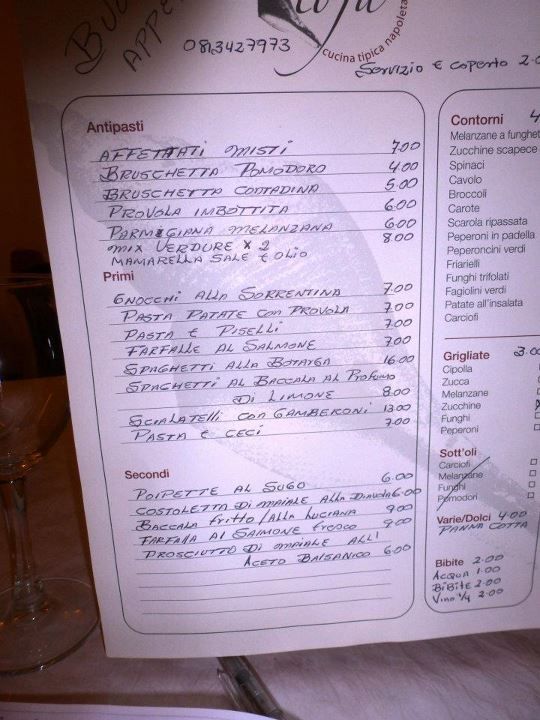 BUON
APPE
cucina tipica napoleta
0813427973
Servizio e coperto 2.0
Antipasti
AFFETTATI MISTI 7.00
BRUSCHETTA POMODORO 4.00
BRUSCHETTA CONTADINA 5.00
PROVOLA IMBOTTITA 6.00
PARMIGIANA MELANZANA 6.00
MIX VERDURE X 2 8.00
MAMARELLA SALE E OLIO
Primi
GNOCCHI ALLA SORRENTINA 7.00
PASTA PATATE CON PROVOLA 7.00
PASTA E PISELLI 7.00
FARFALLE AL SALMONE 7.00
SPAGHETTI ALLA BOTARGA 16.00
SPAGHETTI AL BACCALA AL PROFUMO
DI LIMONE 8.00
SCIALATELLI CON GAMBERONI 13.00
PASTA E CECI 7.00
Secondi
POLPETTE AL SUGO 6.00
COSTOLETTA DI MAIALE ALLA DIAVOLA 6.00
BACCALA FRITTO/ALLA LUCIANA 9.00
FARFALA AL SALMONE FRESCO 9.00
PROSCIUTTO DI MAIALE ALL'
ACETO BALSANICO 6.00
Contorni 4
Melanzane a funghet
Zucchine scapece
Spinaci
Cavolo
Broccoli
Carote
Scarola ripassata
Peperoni in padella
Peperoncini verdi
Friarielli
Funghi trifolati
Fagiolini verdi
Patate all'insalata
Carciofi
Grigliate 3.00
Cipolla
Zucca
Melanzane
Zucchine
Funghi
Peperoni
Sott'oli
Carciofi
Melanzane
Funghi
Pomodori
Varie/Dolci 4.00
PANNA COTTA
Bibite 2.00
ACQUA 1.00
BIBITE 2.00
VINO 1/4 2.00